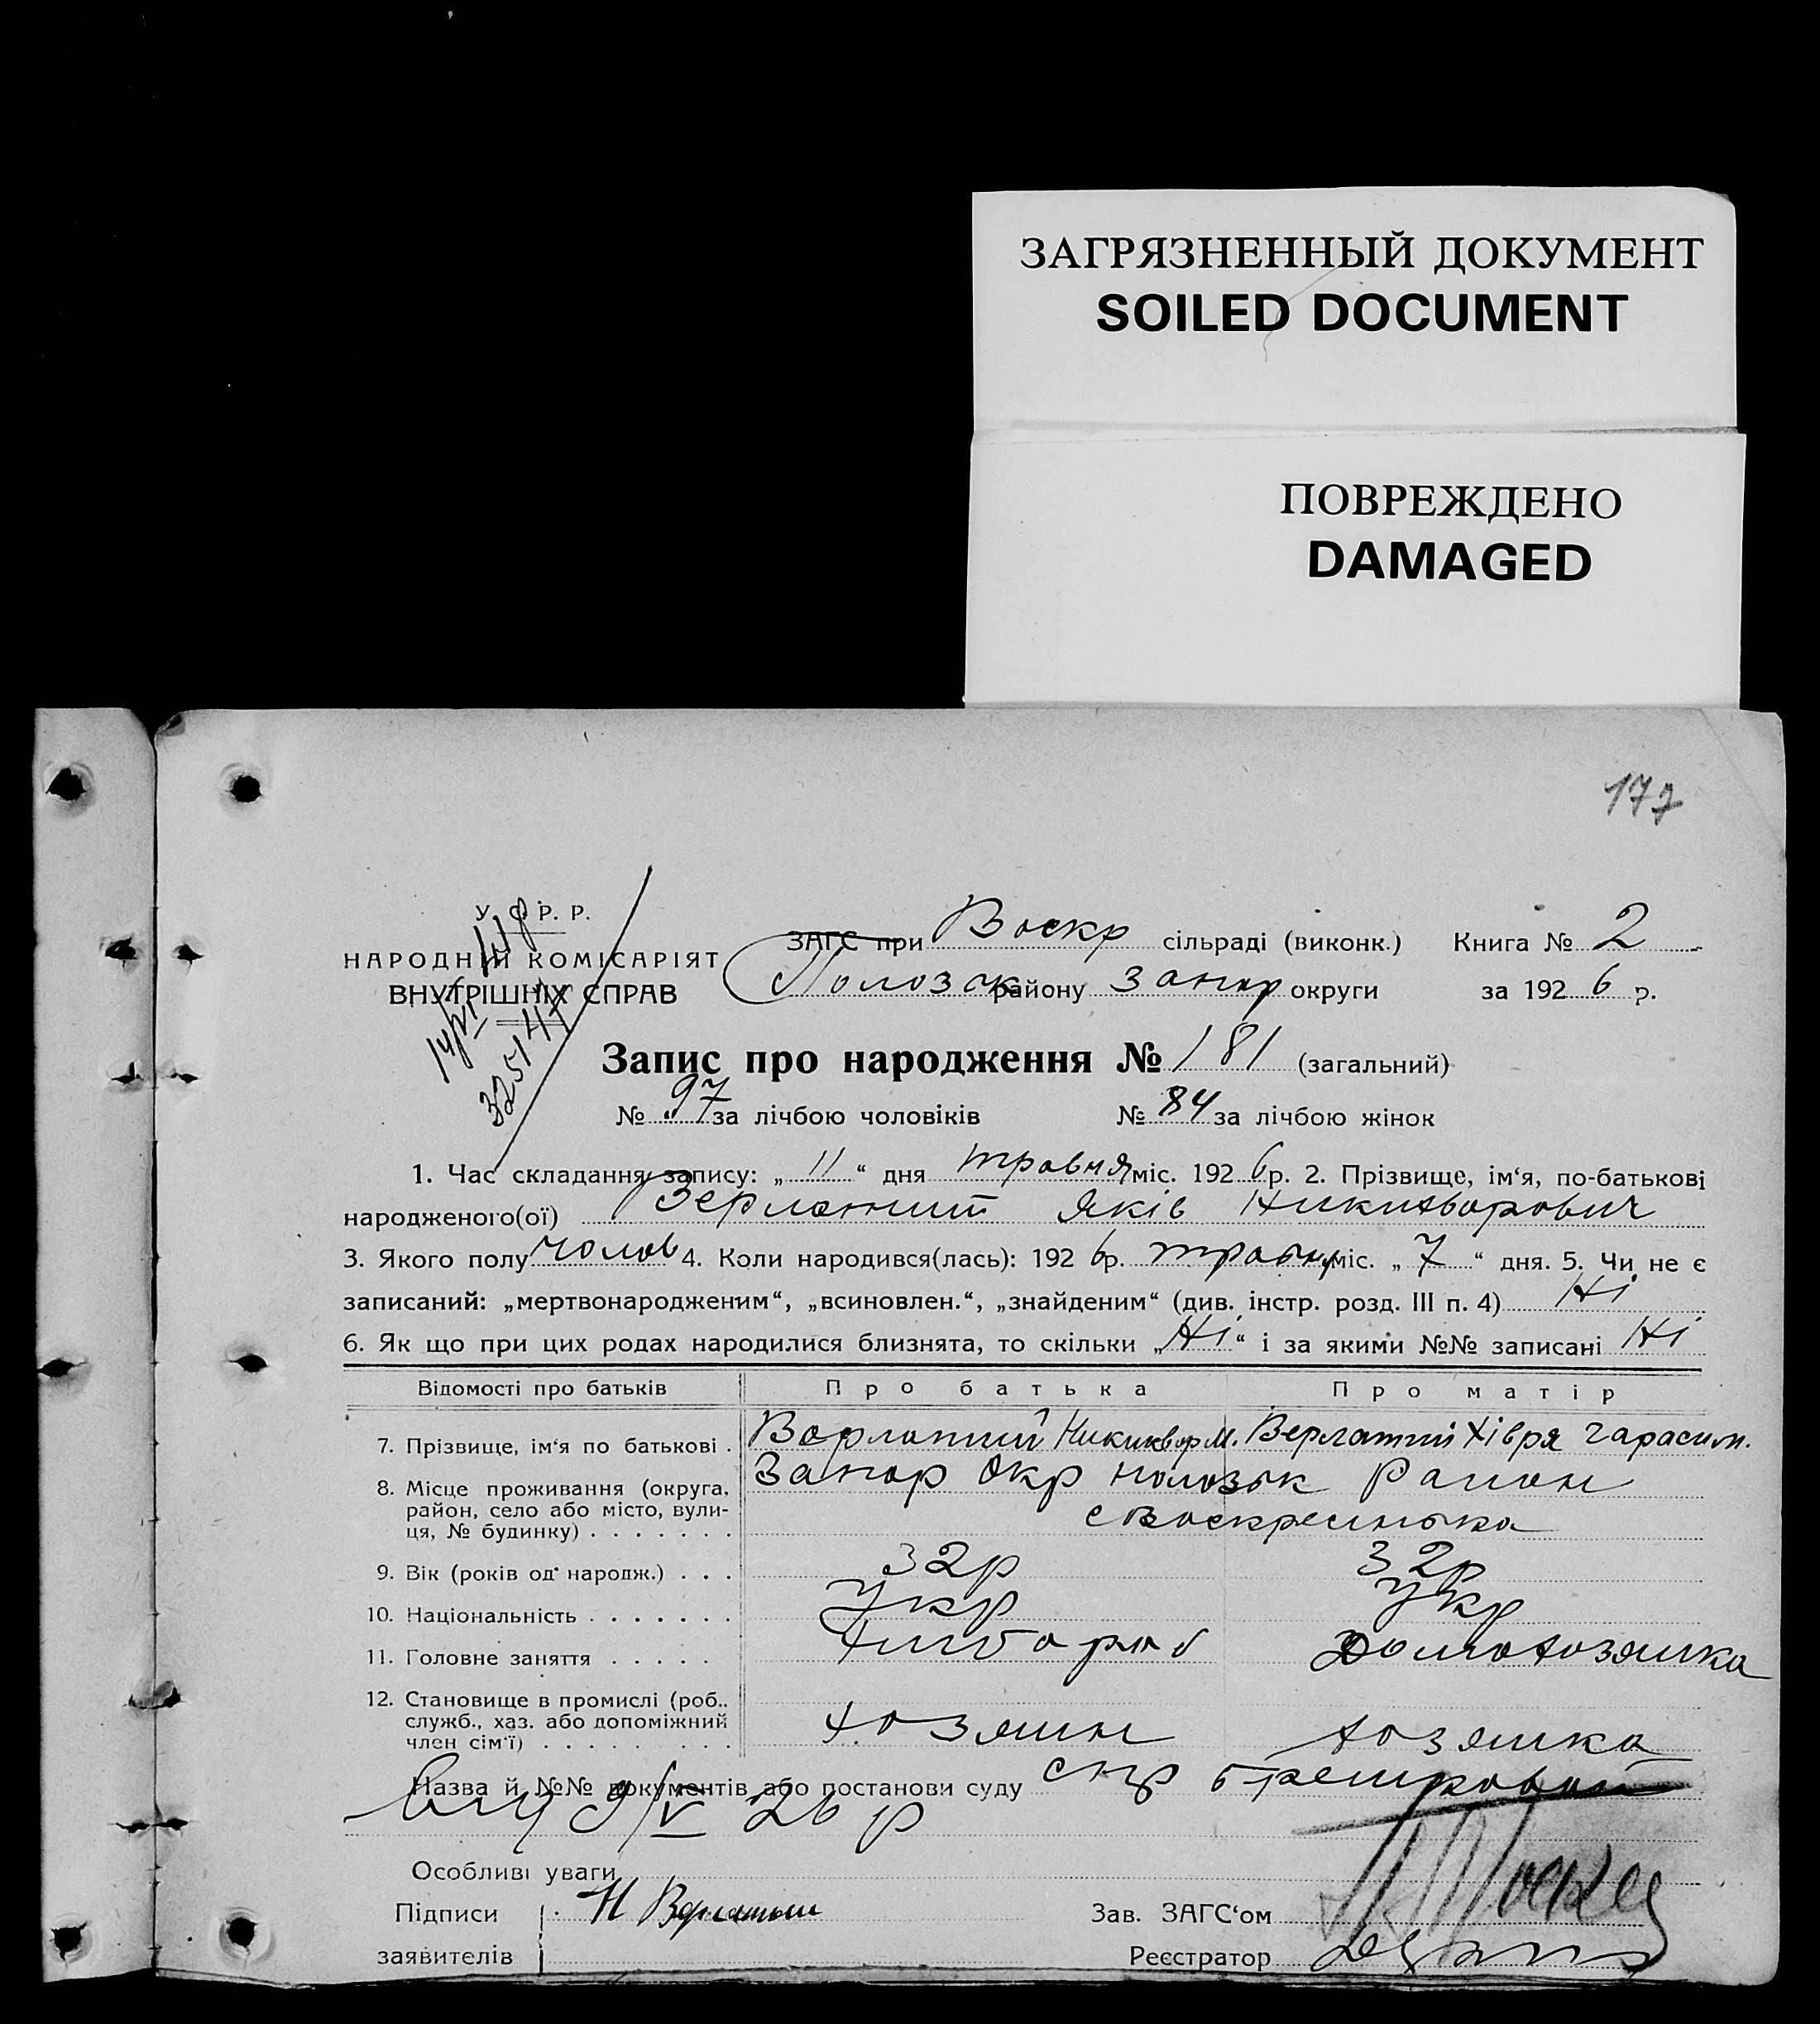 ЗАГРЯЗНЕННЫЙ ДОКУМЕНТ
SOILED DOCUMENT
ПОВРЕЖДЕНО
DAMAGED
177
У. С. Р. Р.
НАРОДНІЙ КОМІСАРІЯТ
ВНУТРІШНІХ СПРАВ
ЗАГС при Воскр сільраді (виконк.) Книга № 2
Полозак району Запор округи за 1926 р.
Запис про народження № 181 (загальний)
№ 97 за лічбою чоловіків № 84 за лічбою жінок
1. Час складання запису: „11“ дня травня міс. 1926 р. 2. Прізвище, ім‘я, по-батькові
народженого(ої) Яків
3. Якого полу чолов 4. Коли народився(лась): 1926 р. травня міс. „7“ дня. 5. Чи не є
записаний: „мертвонародженим“, „всиновлен.“, „знайденим“ (див. інстр. розд. III п. 4) Ні
6. Як що при цих родах народилися близнята, то скільки „Ні“ і за якими №№ записані Ні
Відомості про батьків Про батька Про матір
7. Прізвище, ім‘я по батькові . Верлатий Хівря Гарасим.
8. Місце проживання (округа, Запор Окр Полозьк Район
район, село або місто, вули-
ця, № будинку) . . . . . . . с Воскресинька
9. Вік (років од народж.) . . . 32р 32р
10. Національність . . . . . . . Укр Укр
11. Головне заняття . . . . . Хлібороб Домохозяйка
12. Становище в промислі (роб.,
служб., хаз. або допоміжний Хозяин хозяйка
член сім‘ї) . . . . . . . . .
Назва й №№ документів або постанови суду
9/V 26 р
Особливі уваги
Підписи Н Верлатий Зав. ЗАГС‘ом
заявителів Реєстратор